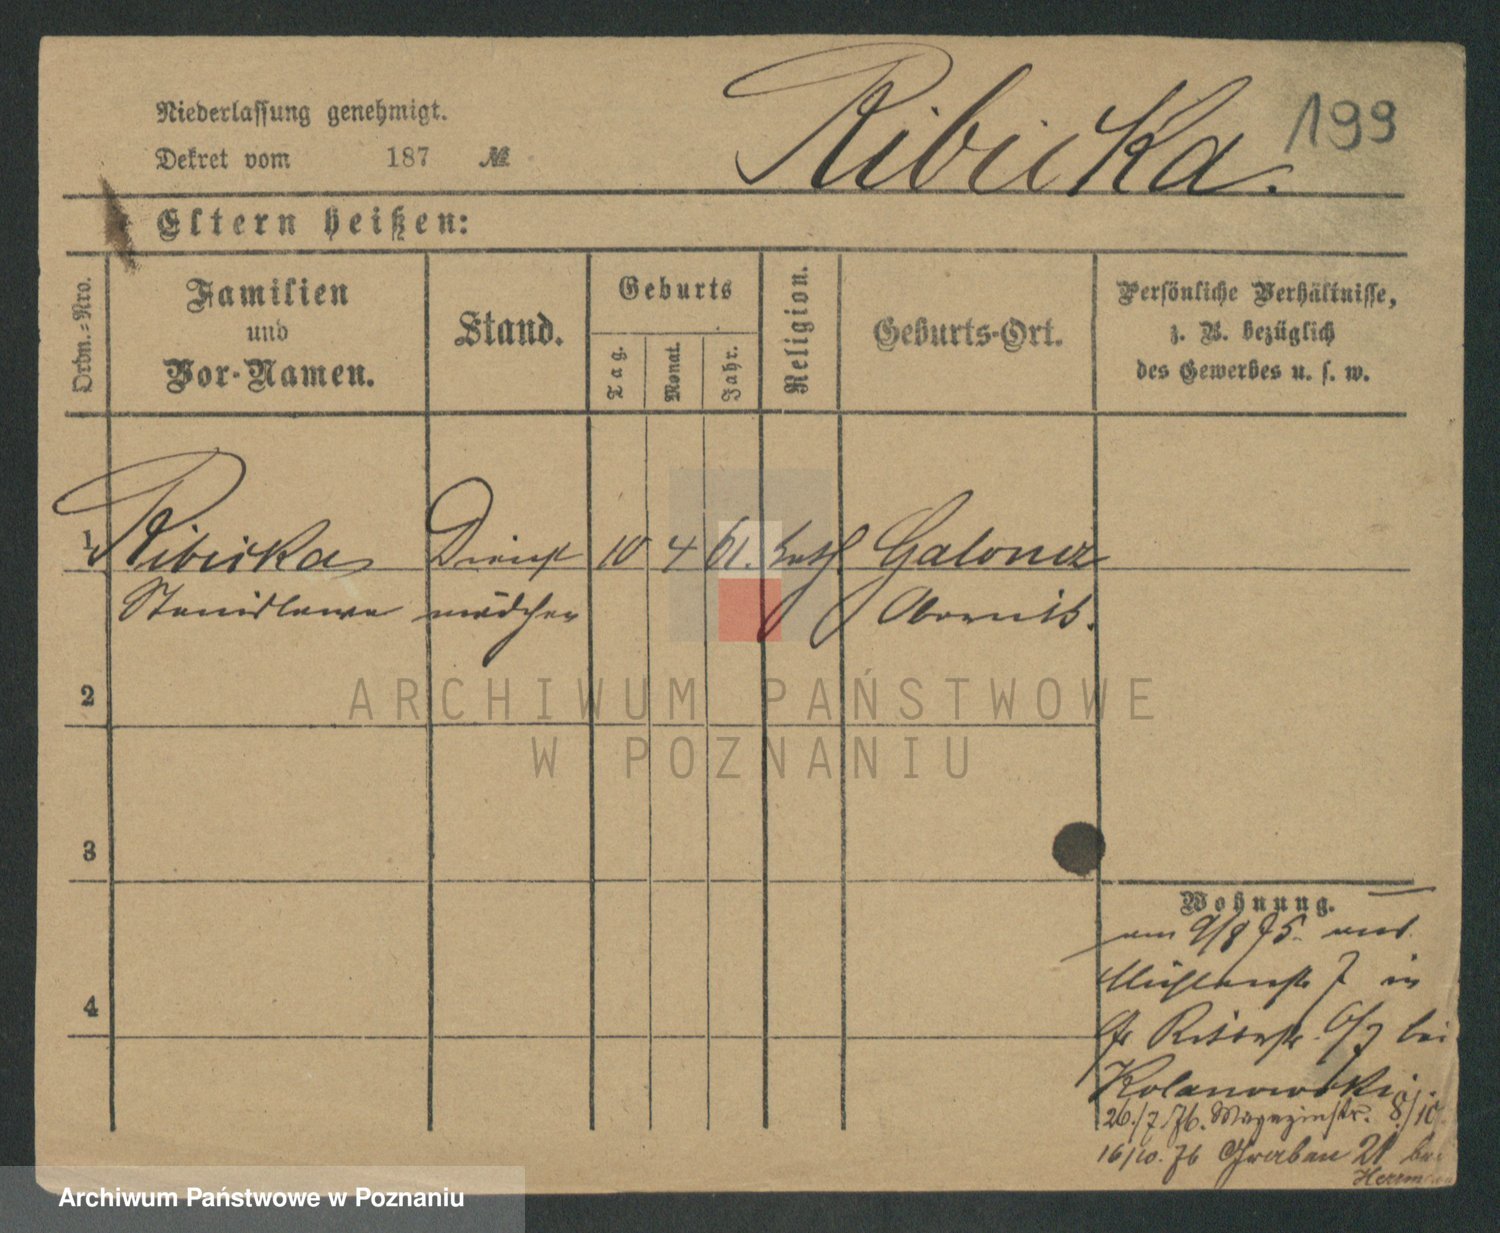 Niederlassung genehmigt.
Dekret vom 187 №
Ribicka.
199
Eltern heißen:
Ordn.-Nro.
Familien
und
Vor-Namen.
Stand.
Geburts
Tag.
Monat.
Jahr.
Religion.
Geburts-Ort.
Persönliche Verhältnisse,
z. B. bezüglich
des Gewerbes u. s. w.
1 Ribicka Dienst 10 4 61. kath.
Stanislawa mädchen Obornik.
2
3
4
Wohnung.
am 9/8 75.
Mühlenstr 7 in
gr Ritterstr. 6/7 bei
Kolanowski.
26./7.76. Magazinstr. 8/10
16/10. 76 Graben 21 bei
ARCHIWUM PAŃSTWOWE
W POZNANIU
Archiwum Państwowe w Poznaniu